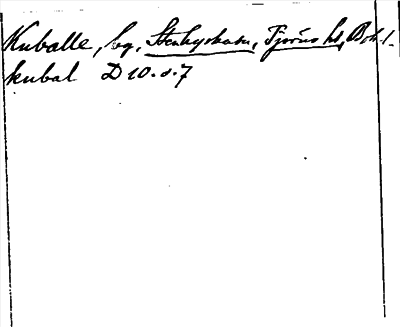 Kuballe, bg, Stenkyrka sn, Tjörns hd, Boh. l.
kubal D 10.8.7